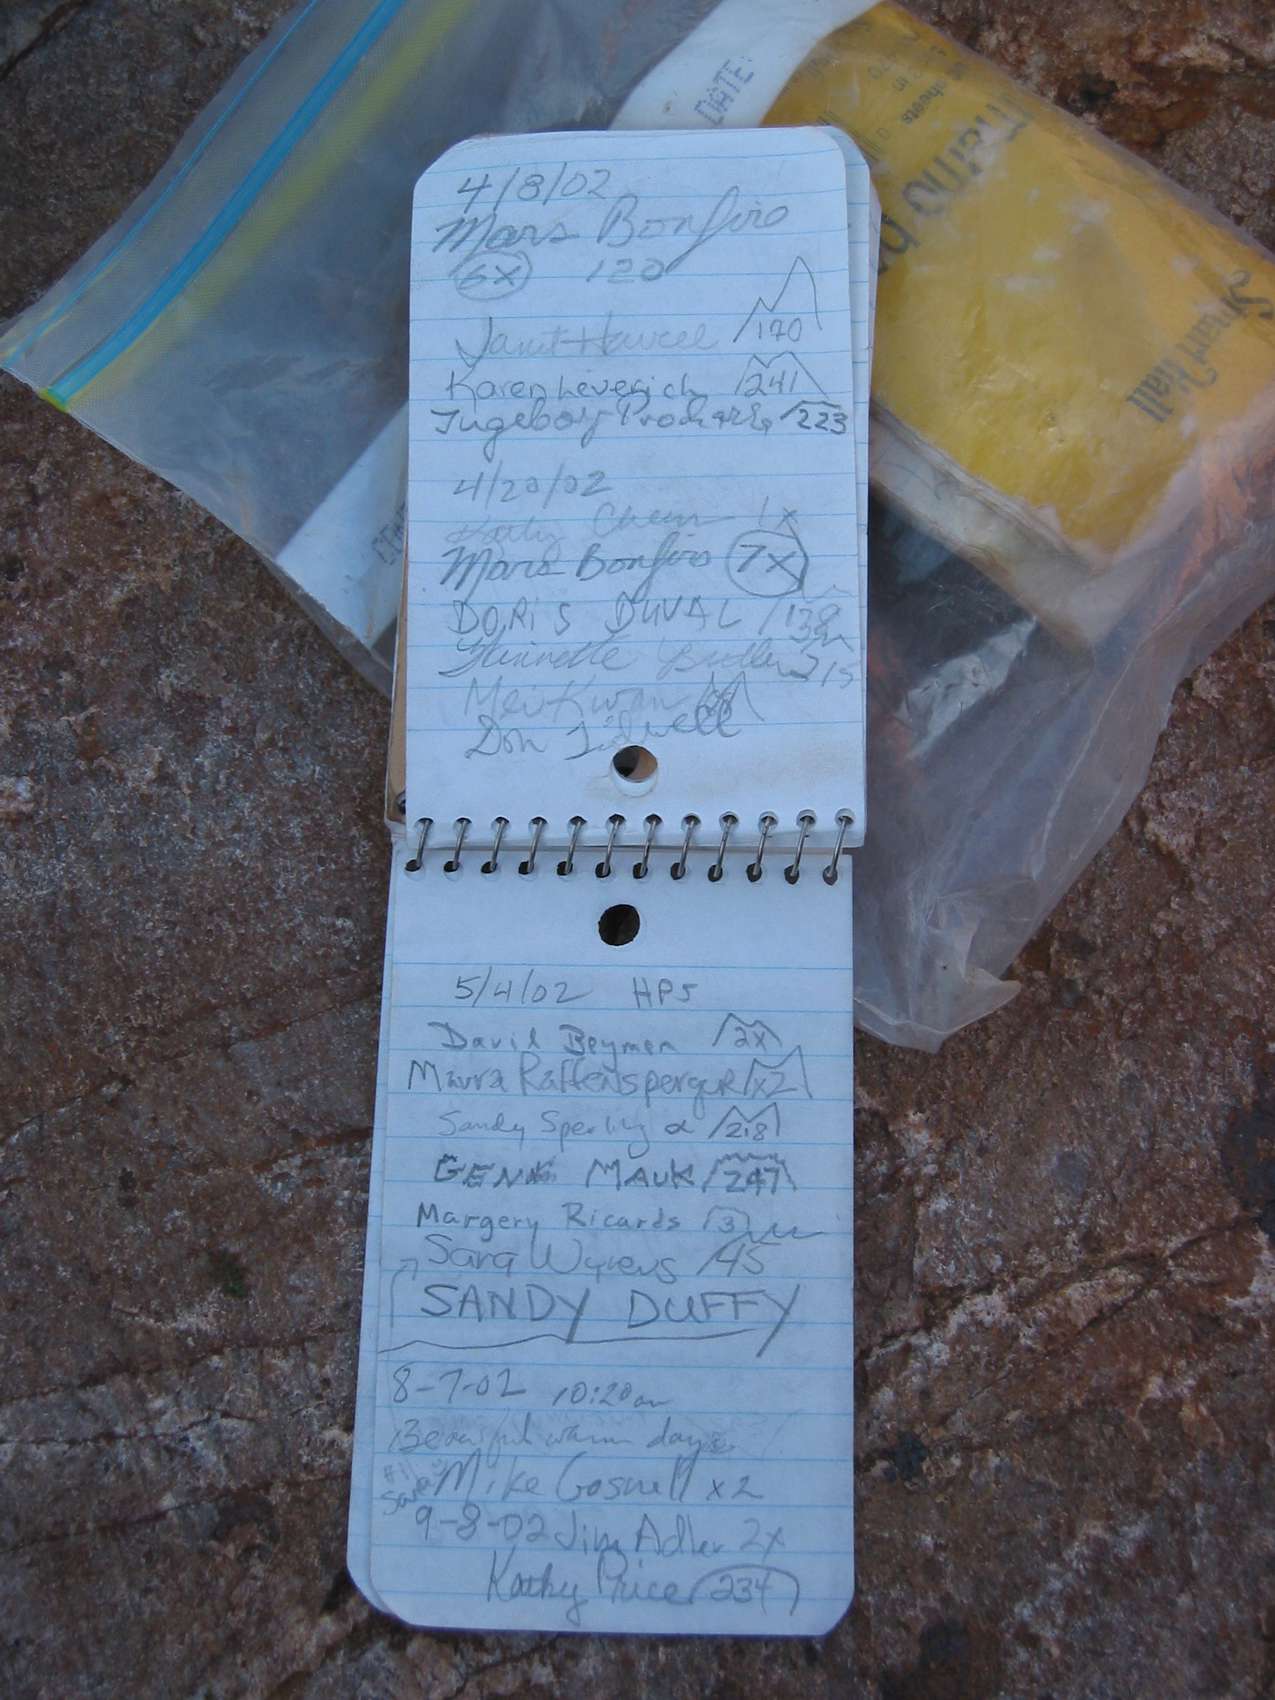 4/8/02
Mars Bonfire
6x 120
Janet Howell 170
Karen Leverich 241
Ingeborg 223
4/20/02
Kathy Cheever 1x
Mars Bonfire 7x
DORIS DUVAL 138
Butler 215
Mei Kwan
Don Tidwell
5/4/02 HPS
David Beymer 2x
Maura Raffensperger x2
Sandy Sperling 2 28
GENE MAUK 247
Margery Ricards 3
Sara Wyrens 45
SANDY DUFFY
8-7-02 10:20am
Beautiful warm day
Mike Gosnell x2
9-8-02 Jim Adler 2x
Kathy Price 234
DATE:
sheets
Memo
Small Wall